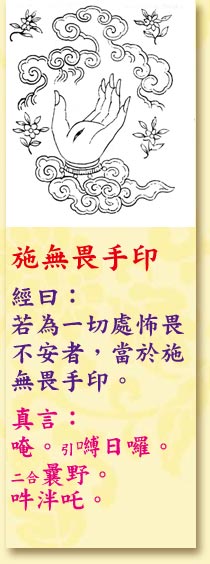 施無畏手印
經曰：
若為一切處怖畏
不安者，當於施
無畏手印。
真言：
唵。引嚩日囉。
二合曩野。
吽泮吒。